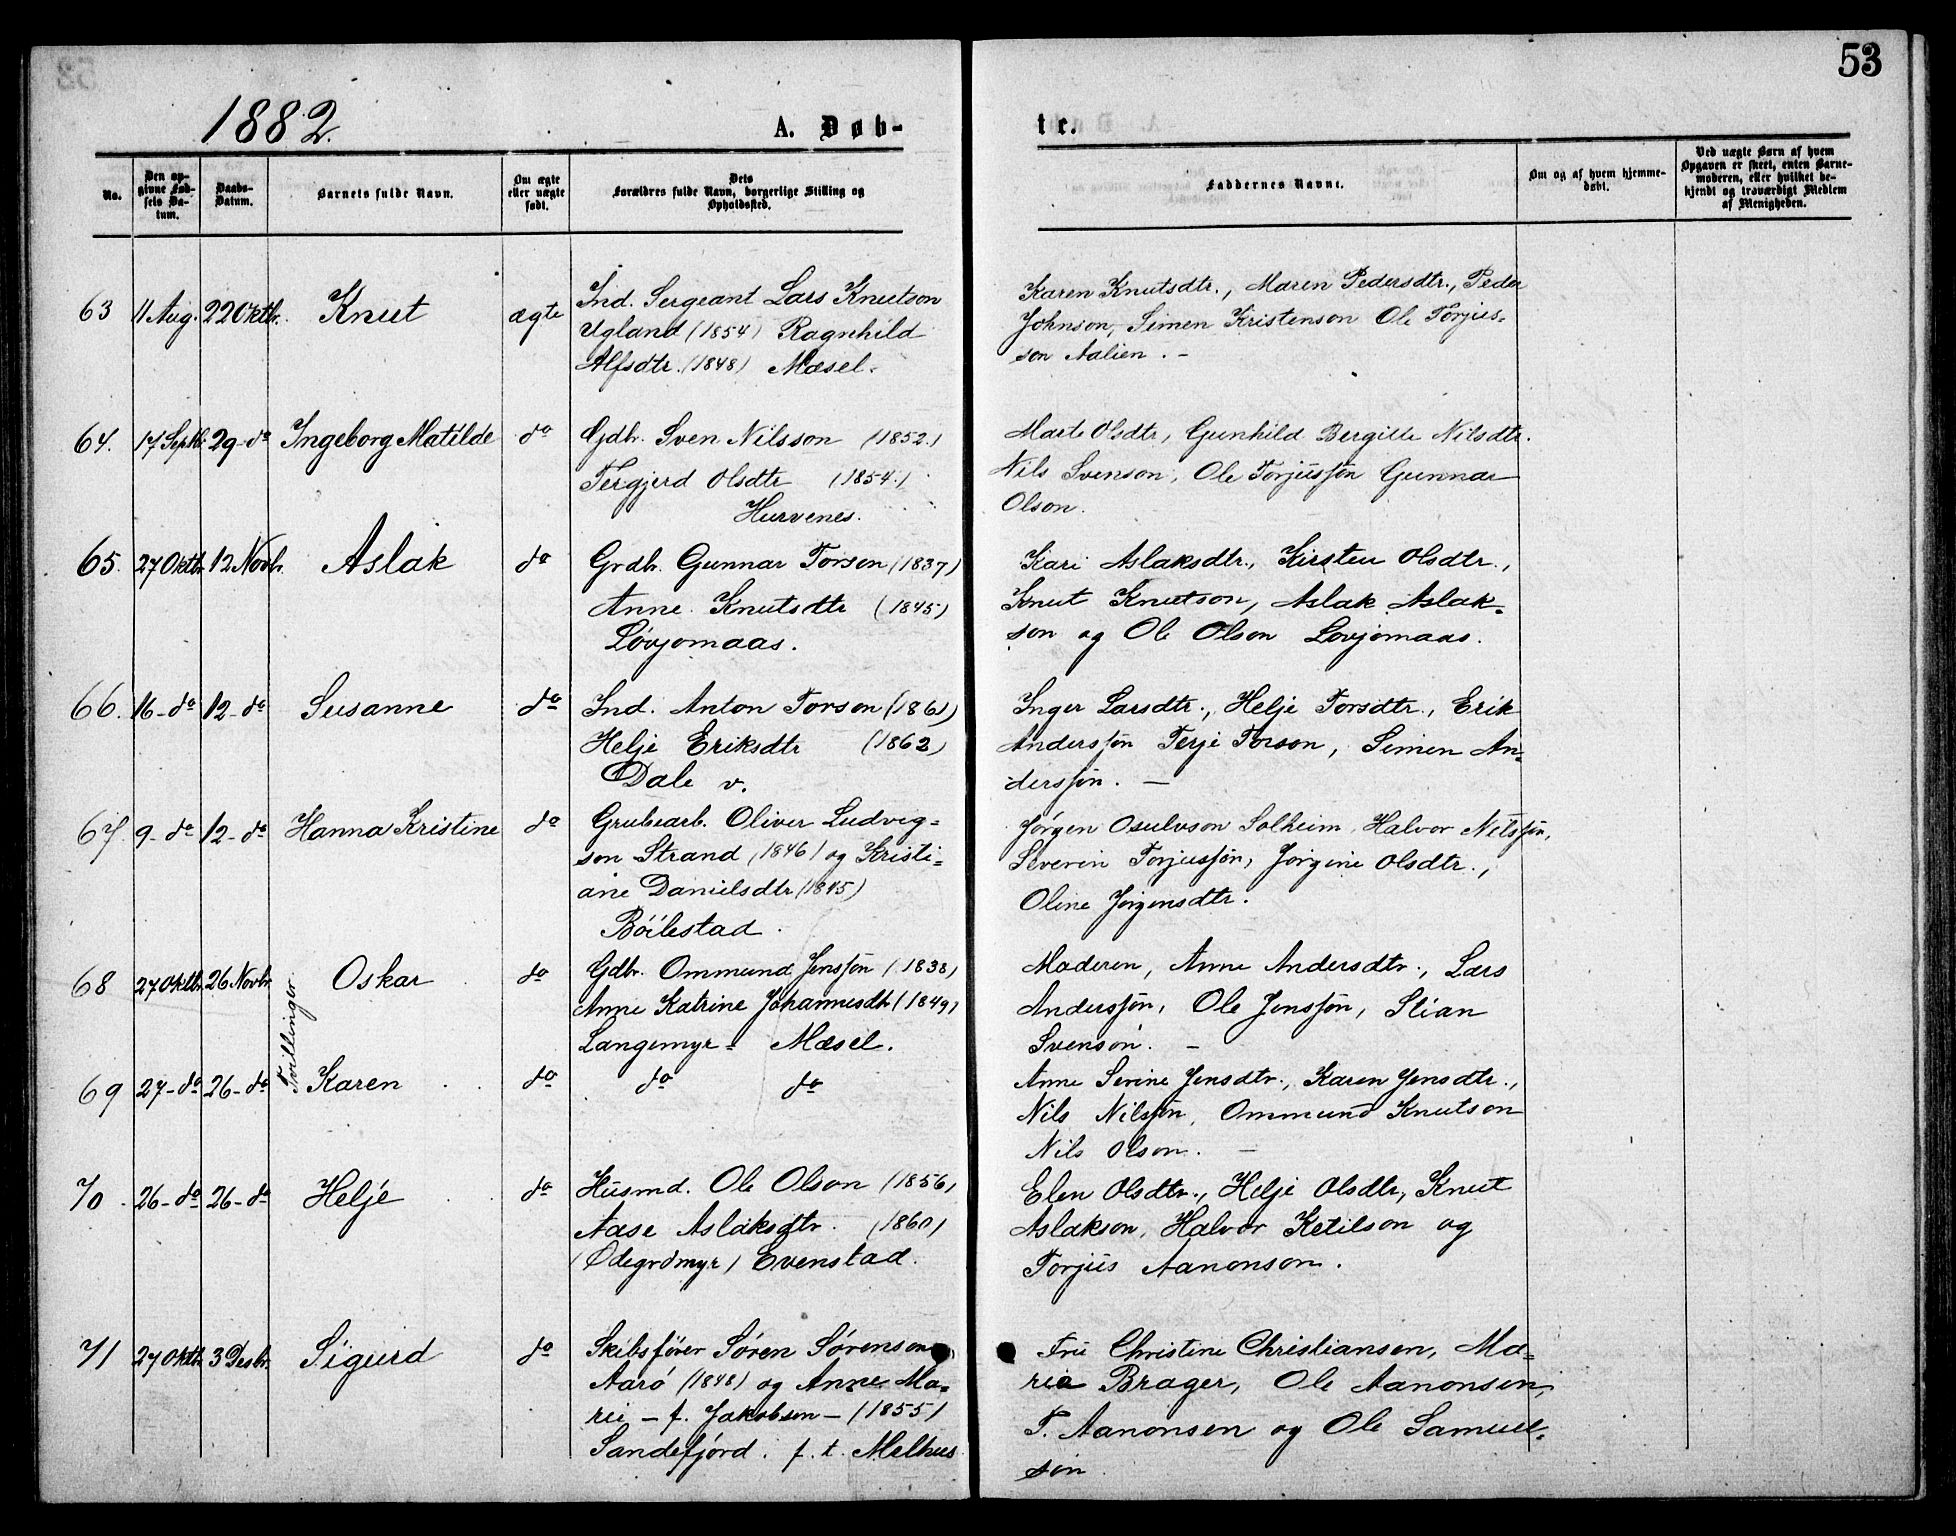 53
1882.
A. Døb-
te.
No.
Den op-
givne Fød-
sels Da-
tum.
Daabs-
Datum.
Barnets fulde Navn.
Om ægte
eller uægte
født.
Dets
Forældres fulde Navn, borgerlige Stilling og
Opholdssted.
Faddernes Navne.
Om og af hvem hjemme-
døbt.
Ved uægte Børn af hvem
Opgaven er skeet, enten Barne-
moderen, eller hvilket be-
kjendt og troværdigt Medlem
af Menigheden.
63 11 Aug. 22 Oktb. Knut ægte
Ind. Sergeant Lars Knutson
Ugland (1854) Ragnhild
Alfsdtr. (1848) Mæsel.
Karen Knutsdtr., Maren Pedersdtr., Peder
Johnson, Simen Kristenson Ole Torjus-
son Aalien. -
64. 17 Septb. 29- do Ingeborg Matilde do
Gdbr. Sven Nilsson (1852.)
Tergjerd Olsdtr (1854.)
Hurvenes.
Marte Olsdtr, Gunhild Bergitte Nilsdtr.
Nils Svenson, Ole Torjussøn Gunnar
Olson.
65. 27 Oktb. 12 Novbr. Aslak do
Grdb. Gunnar Torson (1837)
Anne Knutsdtr (1845)
Løvjomaas.
Kari Aslaksdtr., Kirsten Olsdtr.,
Knut Knutson, Aslak Aslak-
son og Ole Olson Lovjomaas.
66. 16- do 12- do Susanne do
Ind. Anton Torson (1861)
Helje Eriksdtr (1862)
Dale v.
Inger Larsdtr., Helje Torsdtr., Erik
Anderssøn Terje Torson, Simen An-
derssøn. -
67. 9- do 12- do Hanna Kristine do
Grubearb. Oliver Ludvig-
son Strand (1846) og Kristi-
ane Danielsdtr (1845)
Böilestad.
Jørgen Osulvson Solheim, Halvor Nilssøn,
Severin Torjussøn, Jørgine Olsdtr.,
Oline Jørgensdtr.
68 27 Oktb. 26 Novbr. Oskar do
Tvillinger
Gdbr. Ommund Jenssøn (1838)
Anne Katrine Johannesdtr (1849)
Langemyr - Mæsel.
Moderen, Anne Andersdtr., Lars
Anderssøn, Ole Jenssøn, Stian
Svenson. -
69 27- do 26- do Karen do
do do
Anne Serine Jensdtr., Karen Jensdtr.,
Nils Nilssøn, Ommund Knutson
Nils Olson. -
70. 26- do 26- do Helje do
Husmd. Ole Olson (1856)
Aase Aslaksdtr. (1860)
(Ødegrdmyr) Evenstad.
Elen Olsdtr., Helje Olsdtr, Knut
Aslakson, Halvor Ketilson og
Torjus Aanonson.
71 27 Oktb. 3 Desbr. Sigurd do
Skibsfører Søren Sørenson
Aarö (1848) og Anne Ma-
rie - f. Jakobsen - (1855)
Sandefjord. f. t. Melhus
Fru Christine Christiansen, Ma-
rie Brager, Ole Aanonsen,
T. Aanonsen og Ole Samuel-
søn